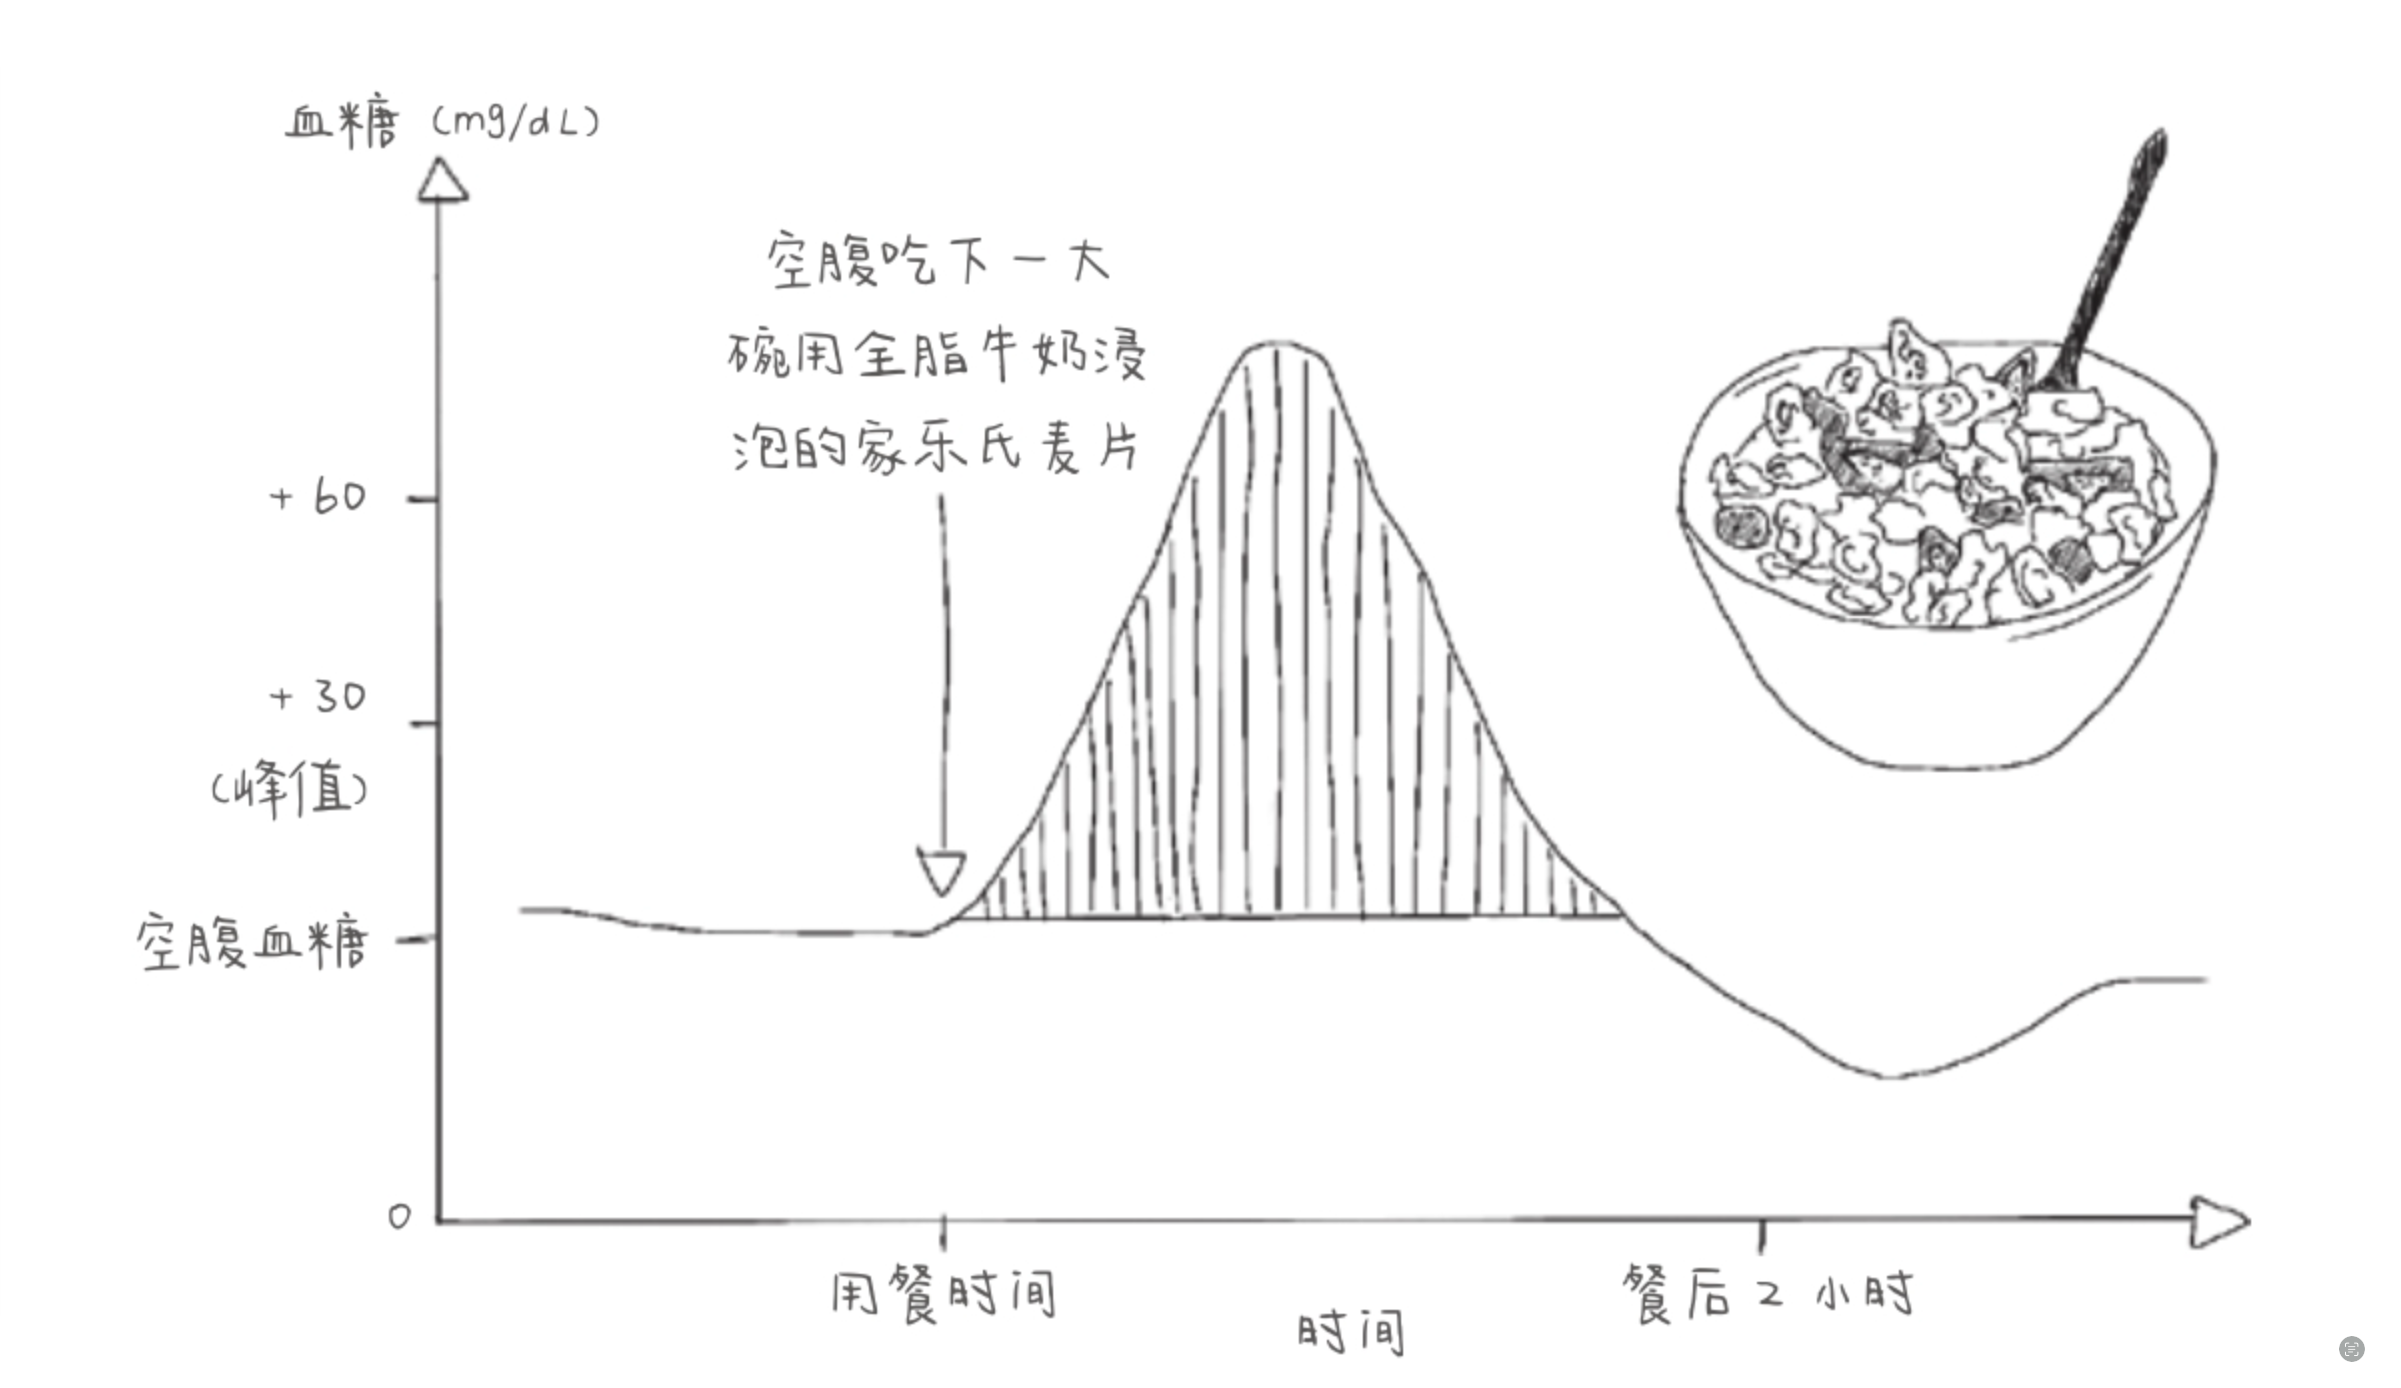 血糖 (mg/dL)
空腹吃下一大
碗用全脂牛奶浸
泡的家乐氏麦片
+60
+30
(峰值)
空腹血糖
0
用餐时间
餐后2小时
时间